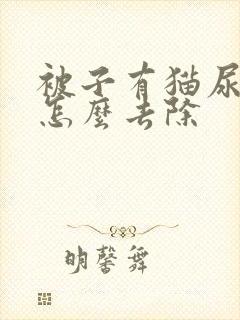 被子有猫尿
怎麼去除
明馨舞